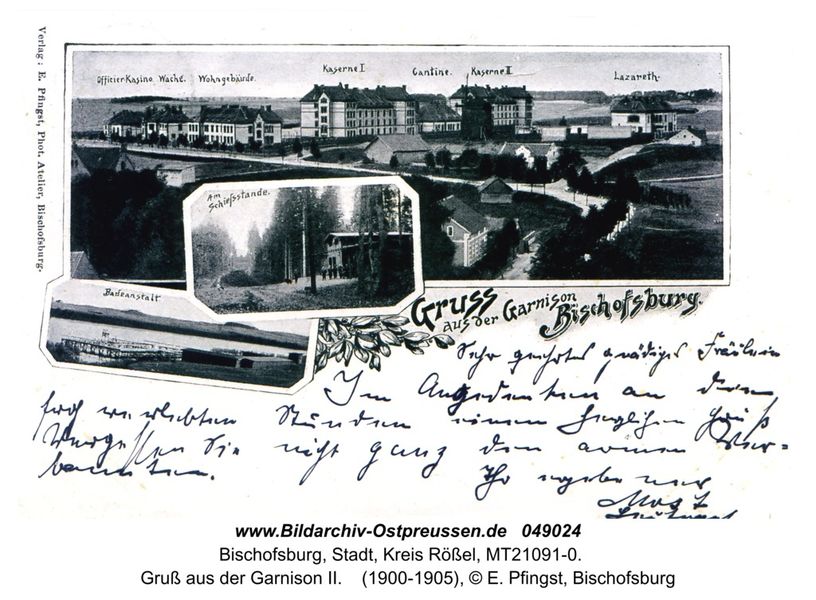 Verlag: E. Pfingst, Phot. Atelier, Bischofsburg.
Officier-Kasino. Wache. Wohngebäude.
Kaserne I
Cantine.
Kaserne II
Lazareth.
Am Schiefsstande.
Badeanstalt
Gruss
aus der Garnison
Bischofsburg.
Sehr geehrtes gnädiges Fräulein
Im Angedenken an die
froh verlebten Stunden einen herzlichen Gruß
Vergessen Sie nicht ganz den armen Ver-
bannten.
Ihr ergebener
Leutnant
www.Bildarchiv-Ostpreussen.de 049024
Bischofsburg, Stadt, Kreis Rößel, MT21091-0.
Gruß aus der Garnison II. (1900-1905), © E. Pfingst, Bischofsburg